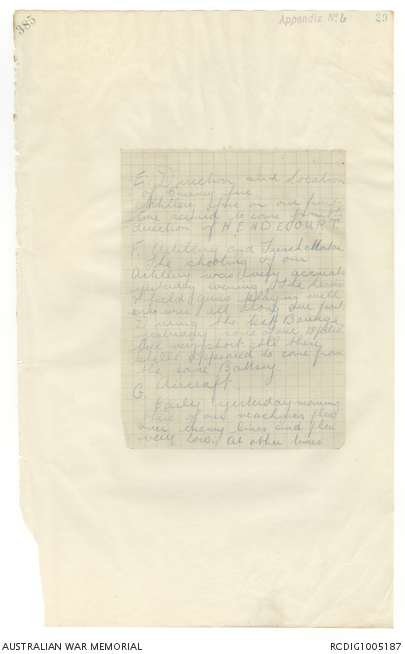 385
Appendix No 6
29
E. Direction and Location
of Enemy fire
Artillery fire on our front
line seemed to come from the
direction of HENDECOURT
F. Artillery and Trench Mortar
The shooting of our
Artillery was very accurate
yesterday evening. The
field guns playing with
all along our front
During the Barrage
yesterday
short the three
shells appeared to come from
the same Battery
G. Aircraft
Early yesterday morning
of our machines flew
over enemy lines and flew
very low. At other times
AUSTRALIAN WAR MEMORIAL
RCDIG1005187